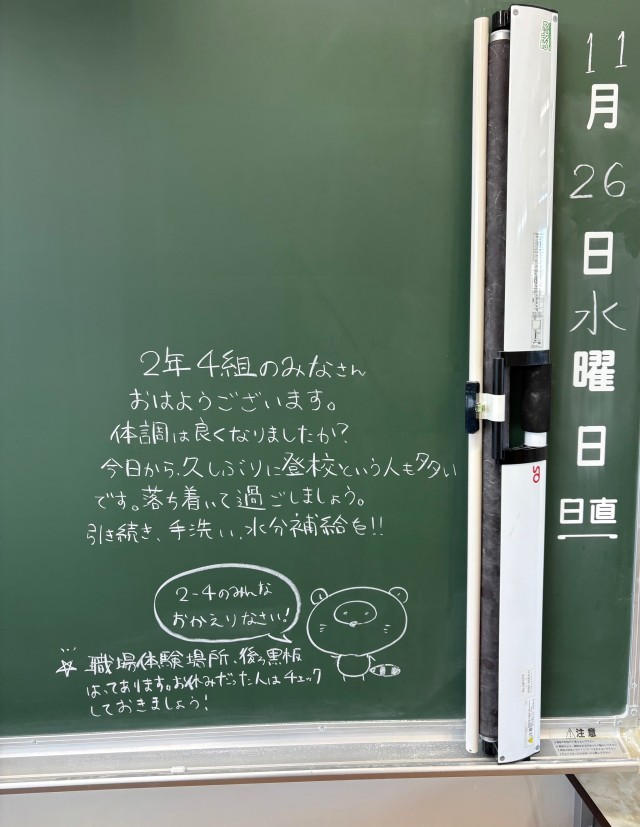 2年4組のみなさん
おはようございます。
体調は良くなりましたか?
今日から、久しぶりに登校という人も多い
です。落ち着いて過ごしましょう。
引き続き、手洗い、水分補給を!!
2-4のみんな
おかえりなさい!
☆ 職場体験場所、後ろ黒板
はってあります。お休みだった人はチェック
しておきましょう!
11
月
26
日
水
曜
日
日直
QS
⚠注意